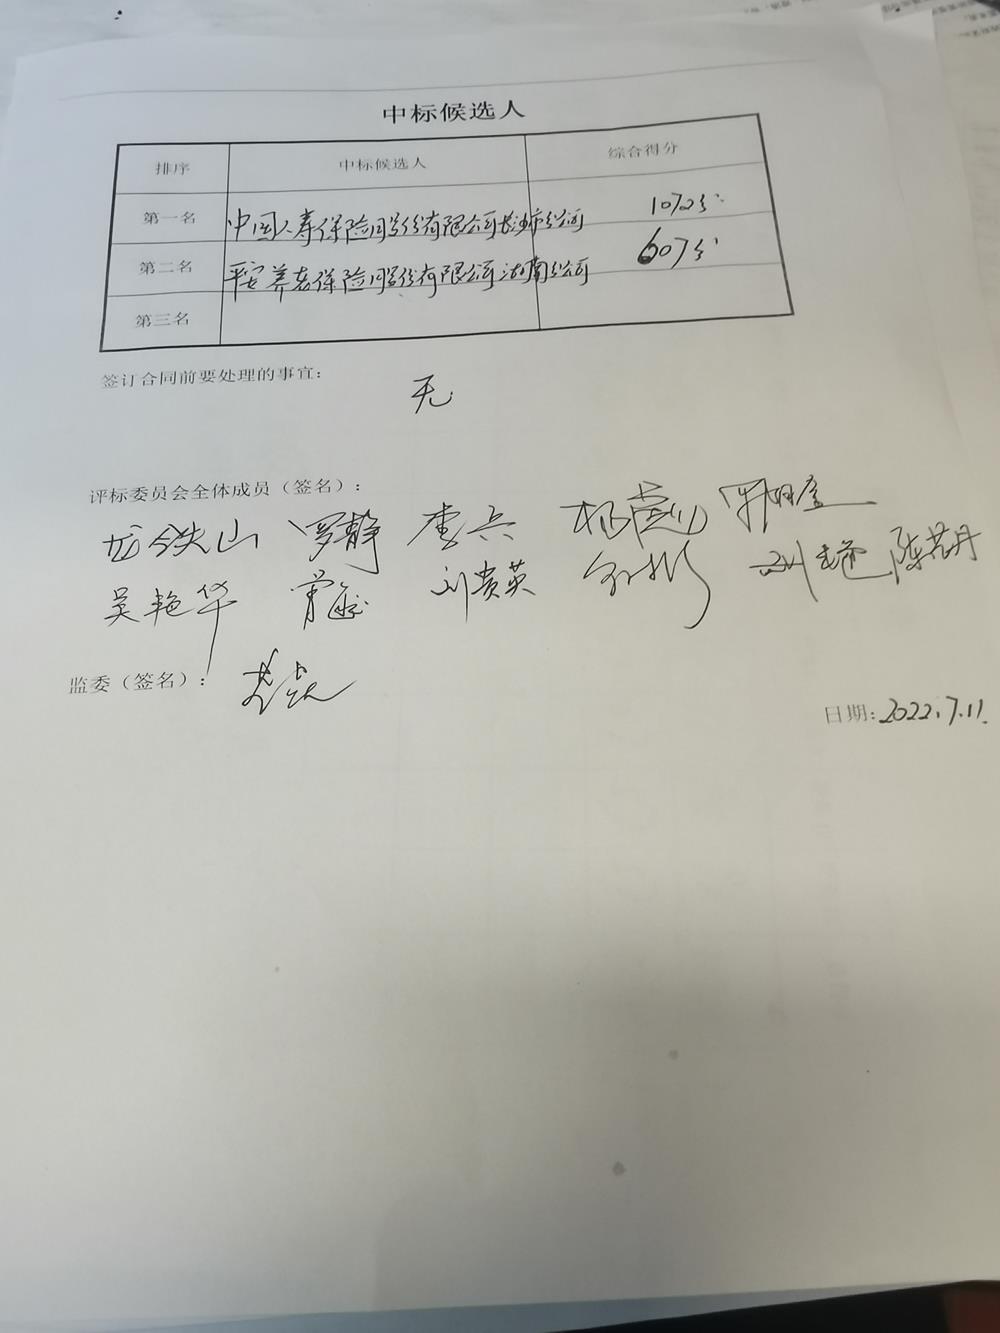 中标候选人
排序 中标候选人 综合得分
第一名 中国人寿保险股份有限公司长沙市分公司 1072分
第二名 平安养老保险股份有限公司湖南分公司 607分
第三名
签订合同前要处理的事宜：
无
评标委员会全体成员（签名）：
龙铁山 罗静 李兵
吴艳华 刘贵英 陈芳丹
监委（签名）：
日期：2022.7.11.